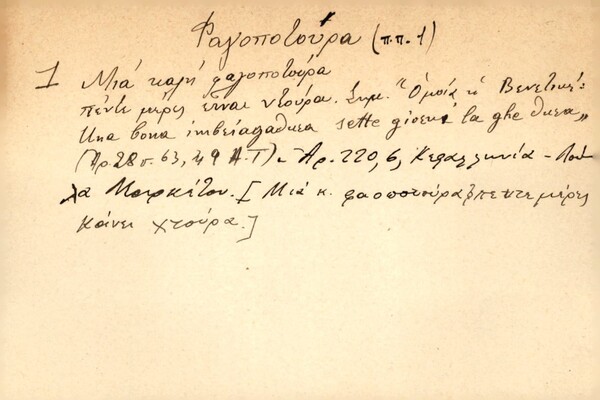 Φαγοποτούρα (π.π. 1)
1 Μιά καλή φαγοποτούρα
πέντε μέρες είναι ντούρα. Σημ. "Ὁμοία κ' Βενετική:
Una bona imbriagadura sette giorni la ghe dura,,
(Ἀρ. 28 σ. 63, 49 Α.Τ). Ἀρ. 220, 6, Κεφαλληνία - Λού-
λα Μαρκέτου. [Μιά κ. φαοποτούρα πεντε μέρες
κάνει χτούρα.]